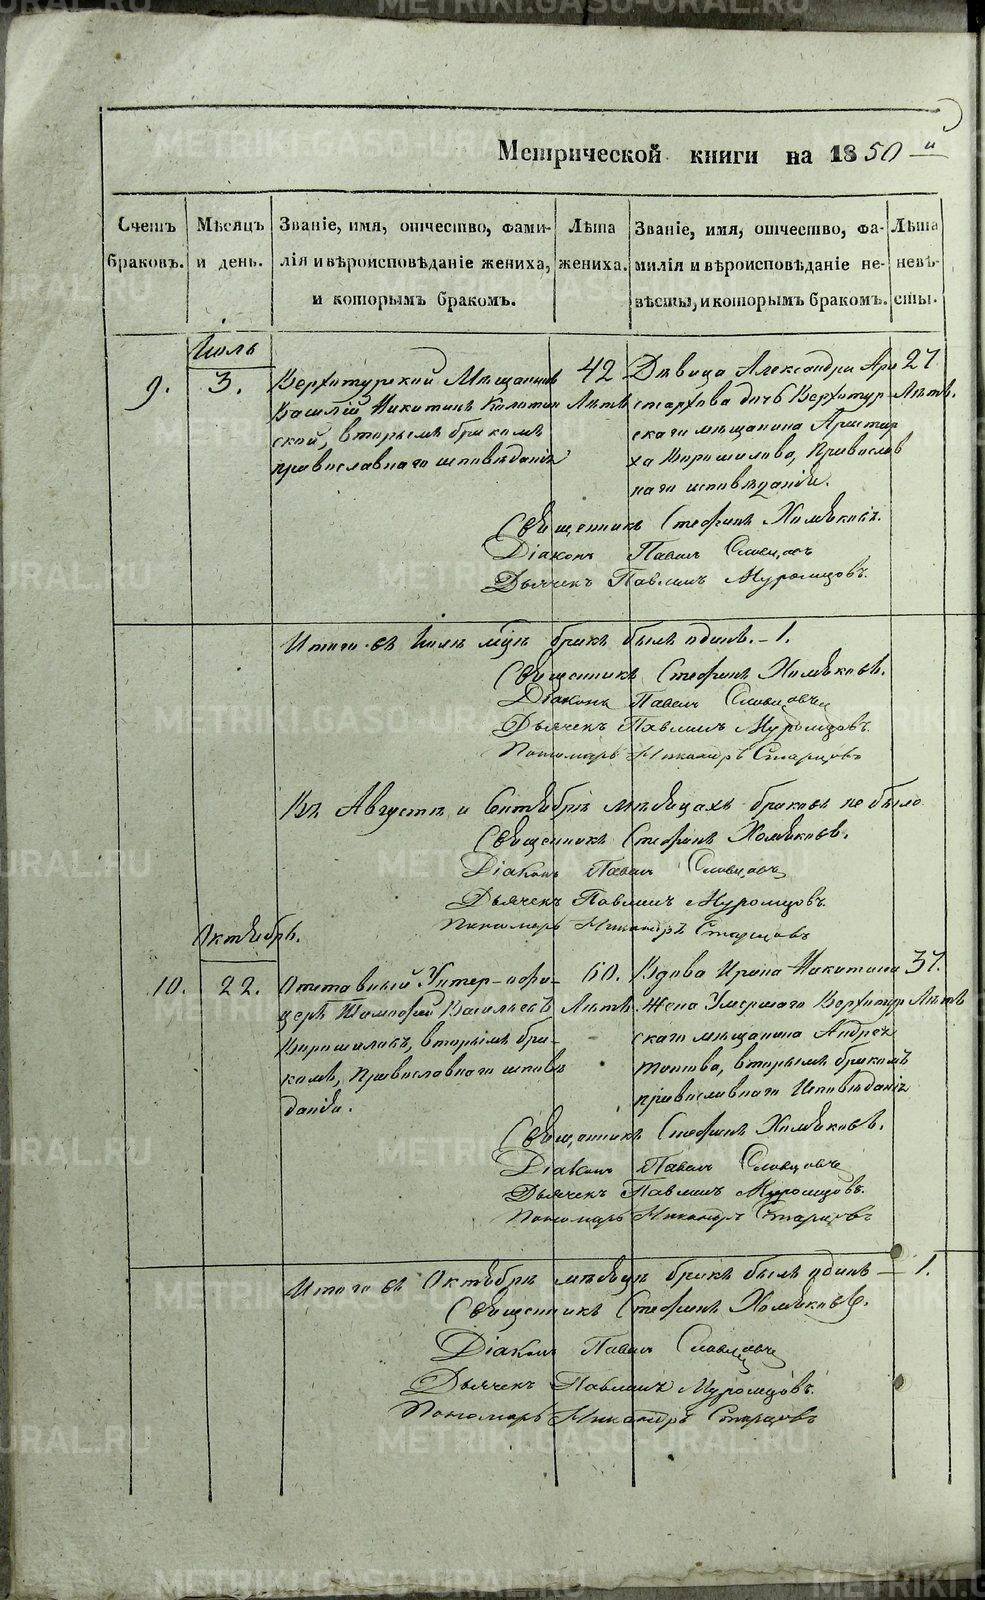 METRIKI.GASO-URAL.RU
Метрической книги на 1850 й
Счетъ браковъ.
Мѣсяцъ и день.
Званіе, имя, отчество, фами-
лія и вѣроисповѣданіе жениха,
и которымъ бракомъ.
Лѣта
жениха.
Званіе, имя, отчество, фа-
милія и вѣроисповѣданіе не-
вѣсты, и которымъ бракомъ.
Лѣта
невѣ-
сты.
Іюль
9. 3.
Верхотурской Мѣщанинъ
Василій Никитинъ
ской, вторымъ бракомъ
православнаго исповѣданія
42
Лѣтъ
Дѣвица Александра Ари
стархова дочь Верхотур
скаго мѣщанина Аристар
ха Ворошилова, Православ
наго исповѣданія.
27
Лѣтъ.
Священникъ Стефанъ Хомяковъ.
Діаконъ Павелъ Словцовъ
Дьячекъ Павлинъ Муромцовъ.
Итого въ Іюлѣ мцѣ бракъ былъ одинъ. – 1.
Священникъ Стефанъ Хомяковъ.
Діаконъ Павелъ Словцовъ
Дьячекъ Павлинъ Муромцовъ.
Пономарь Никандръ Старцовъ
Въ Августѣ и Сентябрѣ мѣсяцахъ браковъ не было
Священникъ Стефанъ Хомяковъ.
Діаконъ Павелъ Словцовъ
Дьячекъ Павлинъ Муромцовъ.
Пономарь Никандръ Старцовъ
Октябрь.
10. 22.
Отставный Унтер-офи-
церъ Тимофей Васильевъ
Ворошиловъ, вторымъ бра-
комъ, Православнаго исповѣ
данія.
60.
Лѣтъ.
Вдова Ирина Никитина
Жена Умершаго Верхотур
скаго мѣщанина Андрея
Титова, вторымъ бракомъ
православнаго Исповѣданія
37.
Лѣтъ
Священникъ Стефанъ Хомяковъ.
Діаконъ Павелъ Словцовъ
Дьячекъ Павлинъ Муромцовъ.
Пономарь Никандръ Старцовъ
Итого въ Октябрѣ мѣсяцѣ бракъ былъ одинъ – 1.
Священникъ Стефанъ Хомяковъ.
Діаконъ Павелъ Словцовъ
Дьячекъ Павлинъ Муромцовъ.
Пономарь Никандръ Старцовъ